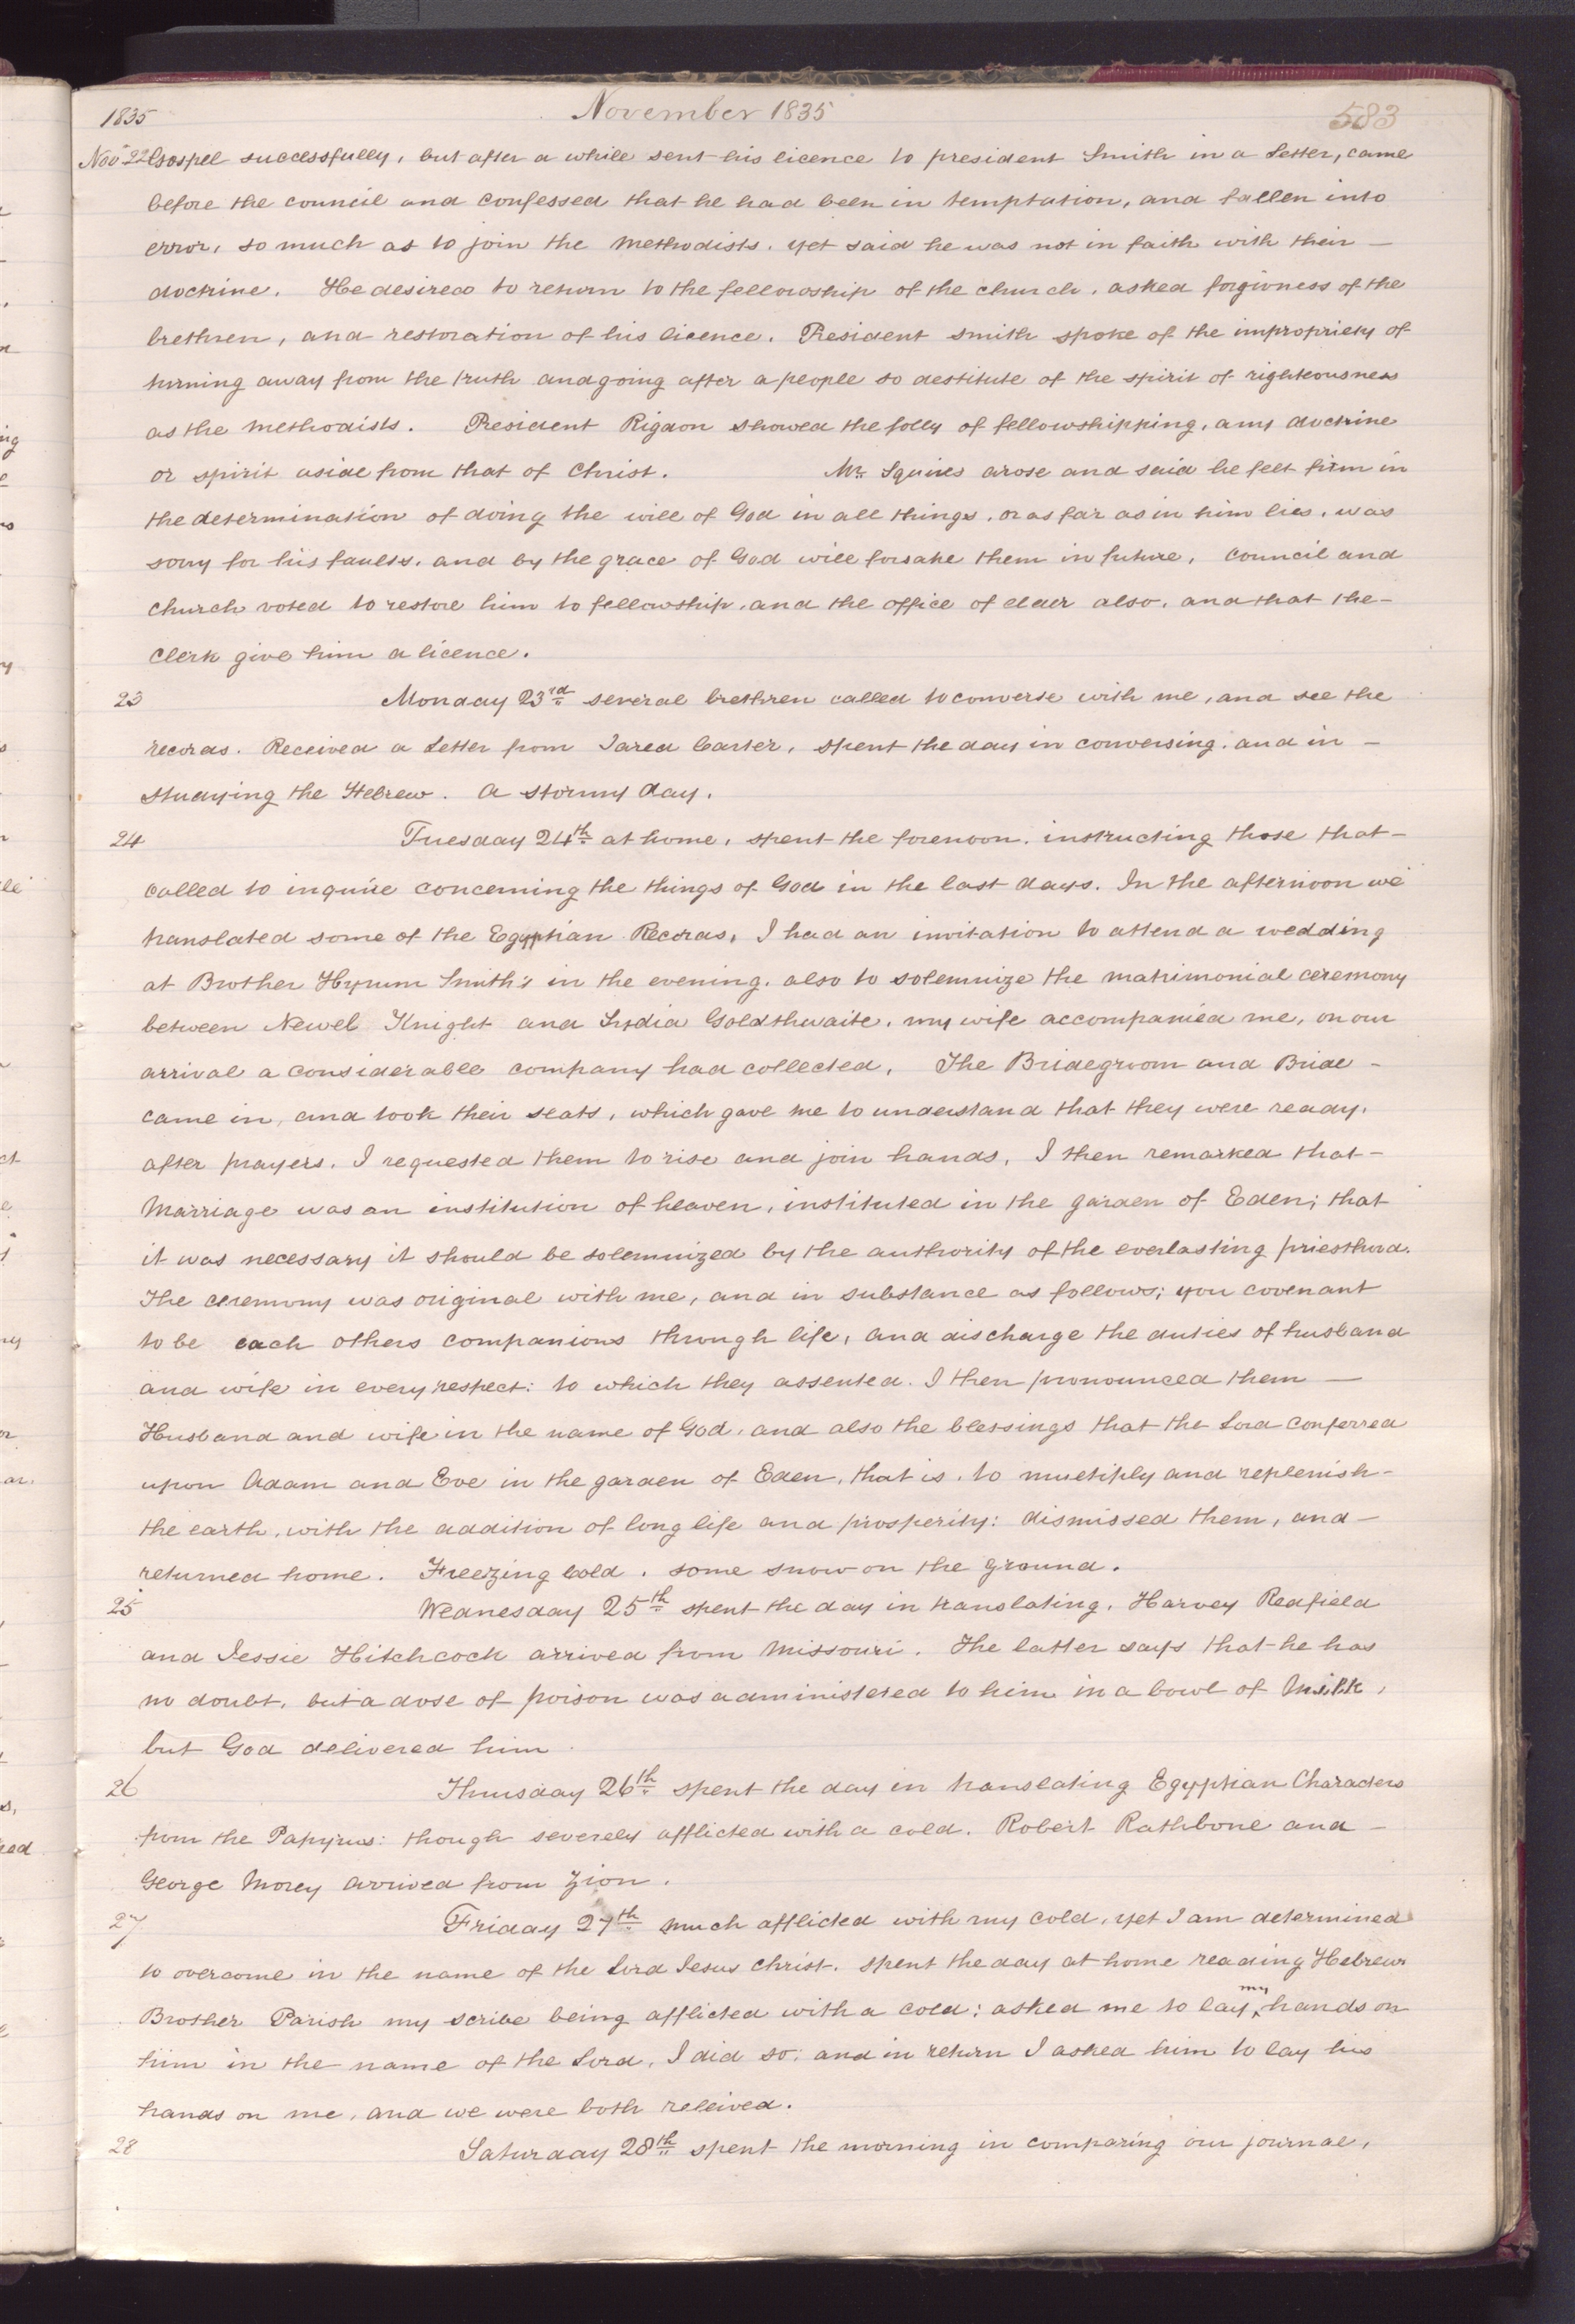 1835 November 1835 583
Nov 22 Gospel successfully, but after a while sent his licence to president Smith in a Letter, came
before the council and confessed that he had been in temptation, and fallen into
error, so much as to join the methodists, yet said he was not in faith with their —
doctrine. He desired to return to the fellowship of the church, asked forgivness of the
brethren, and restoration of his licence. President Smith spoke of the impropriety of
turning away from the truth and going after a people so destitute of the spirit of righteousness
as the methodists. President Rigdon showed the folly of fellowshipping, any doctrine
or spirit aside from that of Christ. Mr. Squires arose and said he felt firm in
the determination of doing the will of God in all things, or as far as in him lies, was
sorry for his faults, and by the grace of God will forsake them in future, council and
church voted to restore him to fellowship, and the office of elder also, and that the —
clerk give him a licence.
23 Monday 23rd several brethren called to converse with me, and see the
records. Received a Letter from Jared Carter, spent the day in conversing, and in —
studying the Hebrew. A stormy day.
24 Tuesday 24th at home, spent the forenoon, instructing those that —
called to inquire concerning the things of God in the last days. In the afternoon we
translated some of the Egyptian Records, I had an invitation to attend a wedding
at Brother Hyrum Smith's in the evening, also to solemnize the matrimonial ceremony
between Newel Knight and Lydia Goldthwaite, my wife accompanied me, on our
arrival a considerable company had collected, The Bridegroom and Bride —
came in, and took their seats, which gave me to understand that they were ready,
after prayers, I requested them to rise and join hands, I then remarked that —
Marriage was an institution of heaven, instituted in the garden of Eden; that
it was necessary it should be solemnized by the authority of the everlasting priesthood.
The ceremony was original with me, and in substance as follows; you covenant
to be each others companions through life, and discharge the duties of husband
and wife in every respect: to which they assented. I then pronounced them —
Husband and wife in the name of God, and also the blessings that the Lord conferred
upon Adam and Eve in the garden of Eden, that is, to multiply and replenish —
the earth, with the addition of long life and prosperity: dismissed them, and —
returned home. Freezing cold, some snow on the ground.
25 Wednesday 25th spent the day in translating. Harvey Redfield
and Jessie Hitchcock arrived from Missouri. The latter says that he has
no doubt, but a dose of poison was administered to him in a bowl of Milk,
but God delivered him.
26 Thursday 26th spent the day in translating Egyptian Characters
from the Papyrus: though severely afflicted with a cold. Robert Rathbone and —
George Morey arrived from Zion.
27 Friday 27th much afflicted with my cold, yet I am determined
to overcome in the name of the Lord Jesus Christ. spent the day at home reading Hebrew
Brother Parish my scribe being afflicted with a cold; asked me to lay my hands on
him in the name of the Lord, I did so; and in return I asked him to lay his
hands on me, and we were both releived.
28 Saturday 28th spent the morning in comparing our journal,